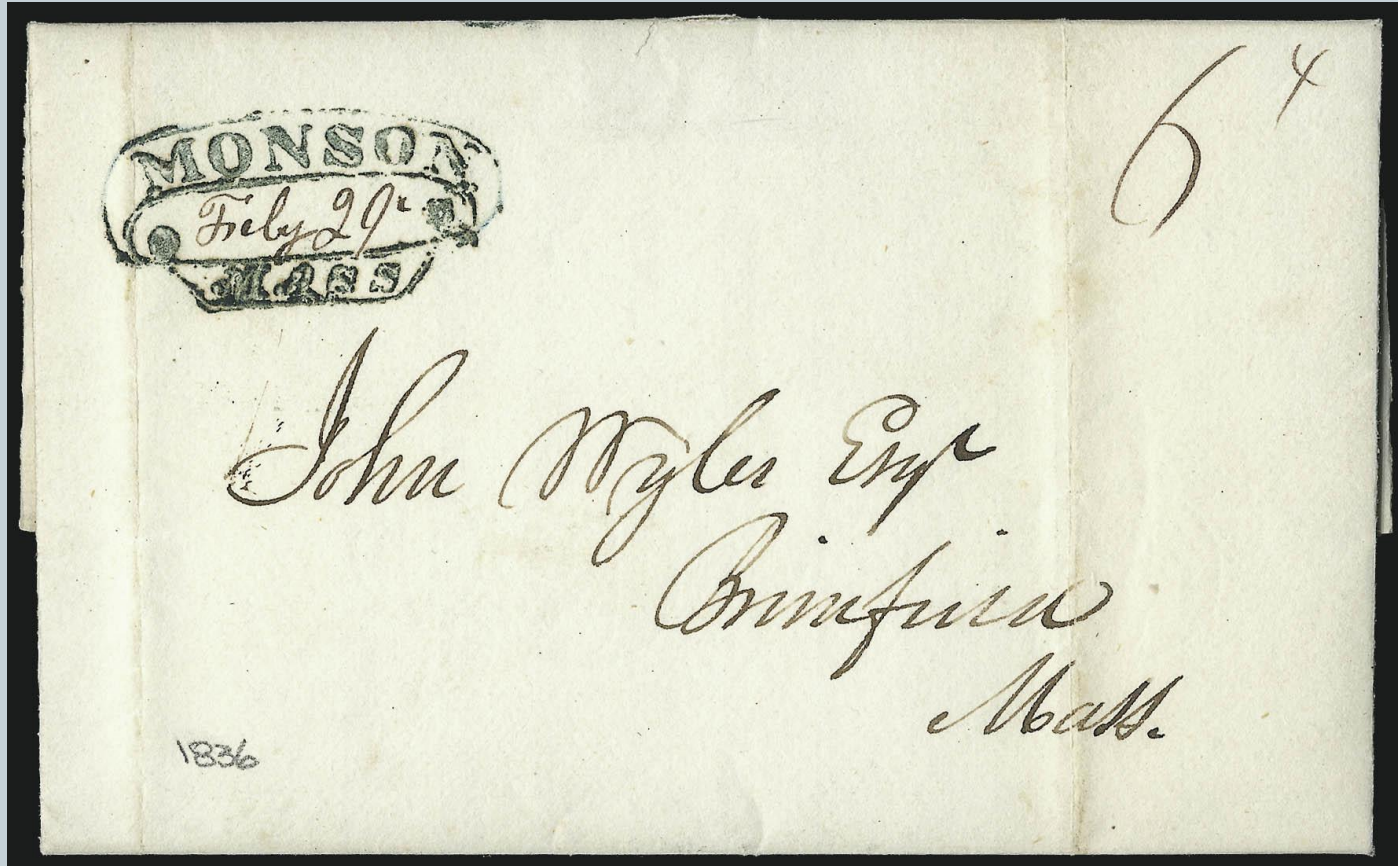 MONSON
Feby 29
MASS
6
4
John Wyles Esqr
Brimfield
Mass.
1836